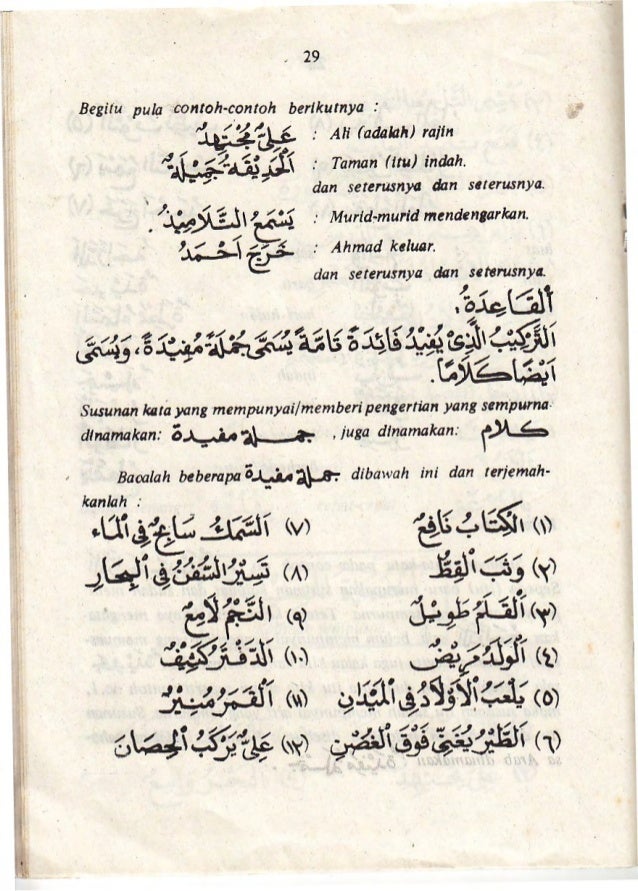 29
Begitu pula contoh-contoh berikutnya :
عَلِيٌّ مُجْتَهِدٌ : Ali (adalah) rajin
اَلْحَدِيْقَةُ جَمِيْلَةٌ : Taman (itu) indah.
dan seterusnya dan seterusnya.
يَسْمَعُ التَّلَامِيْذُ . : Murid-murid mendengarkan.
خَرَجَ اَحْمَدُ : Ahmad keluar.
dan seterusnya dan seterusnya.
اَلْقَاعِدَةُ :
اَلتَّرْكِيْبُ الَّذِيْ يُفِيْدُ فَائِدَةً تَامَّةً يُسَمَّى جُمْلَةً مُفِيْدَةً، وَيُسَمَّى
اَيْضًا كَلَامًا .
Susunan kata yang mempunyai/memberi pengertian yang sempurna
dinamakan: جملة مفيدة , juga dinamakan: كلام
Bacalah beberapa جملة مفيدة dibawah ini dan terjemah-
kanlah :
(١) اَلْكِتَابُ نَافِعٌ (٧) اَلسَّمَكُ سَابِحٌ فِى الْمَاءِ
(٢) وَثَبَ الْقِطُّ (٨) تَسِيْرُ السُّفُنُ فِى الْبِحَارِ
(٣) اَلْقَلَمُ طَوِيْلٌ (٩) اَلنَّجْمُ لَامِعٌ
(٤) اَلْوَلَدُ مَرِيْضٌ (١٠) اَلدَّفْتَرُ كَثِيْفٌ
(٥) يَلْعَبُ الْأَوْلَادُ فِى الْمَيْدَانِ (١١) اَلْقَمَرُ مُنِيْرٌ
(٦) اَلطَّيْرُ يُغَنِّى فَوْقَ الْغُصْنِ (١٢) عَلِيٌّ يَرْكَبُ الْحِصَانَ